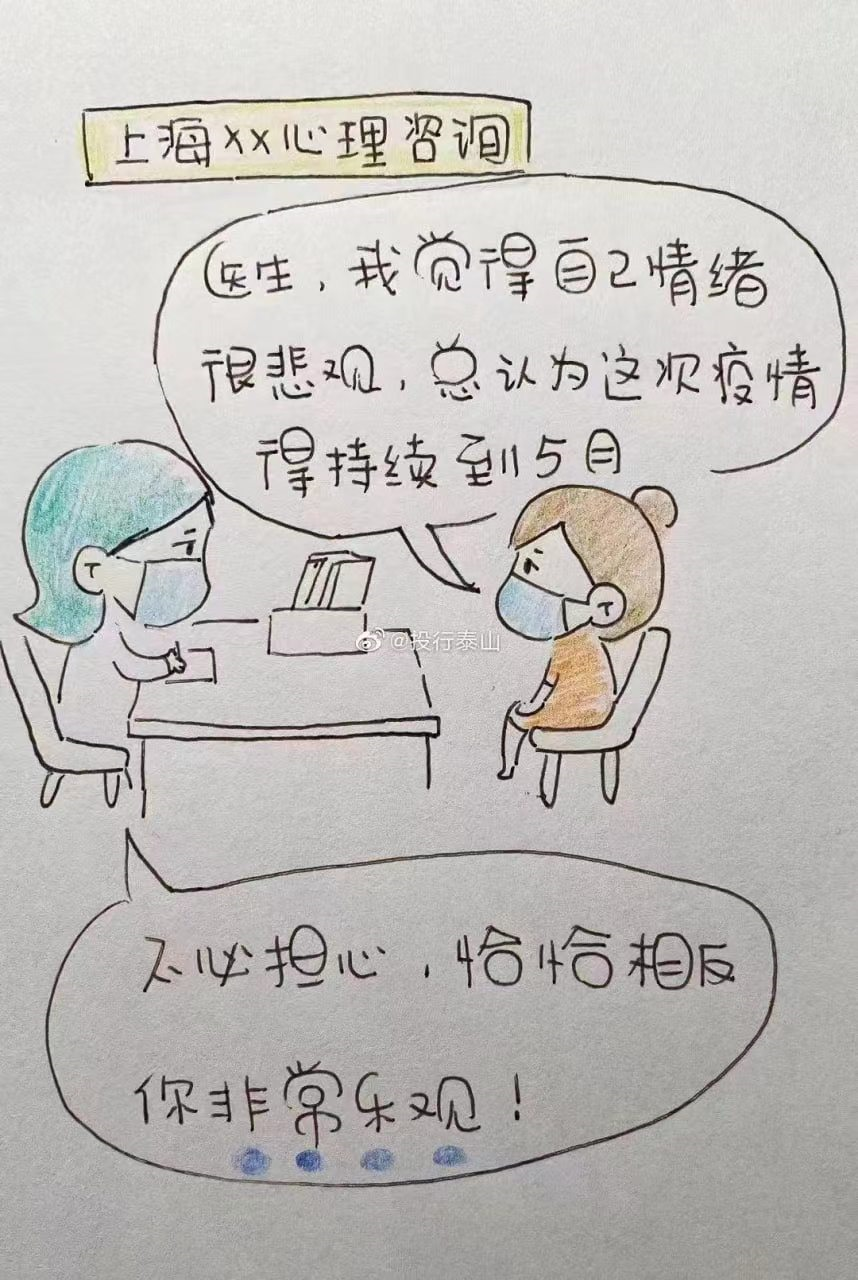 上海xx心理咨询
医生，我觉得自己情绪
很悲观，总认为这次疫情
得持续到5月
@投行泰山
不必担心，恰恰相反
你非常乐观！